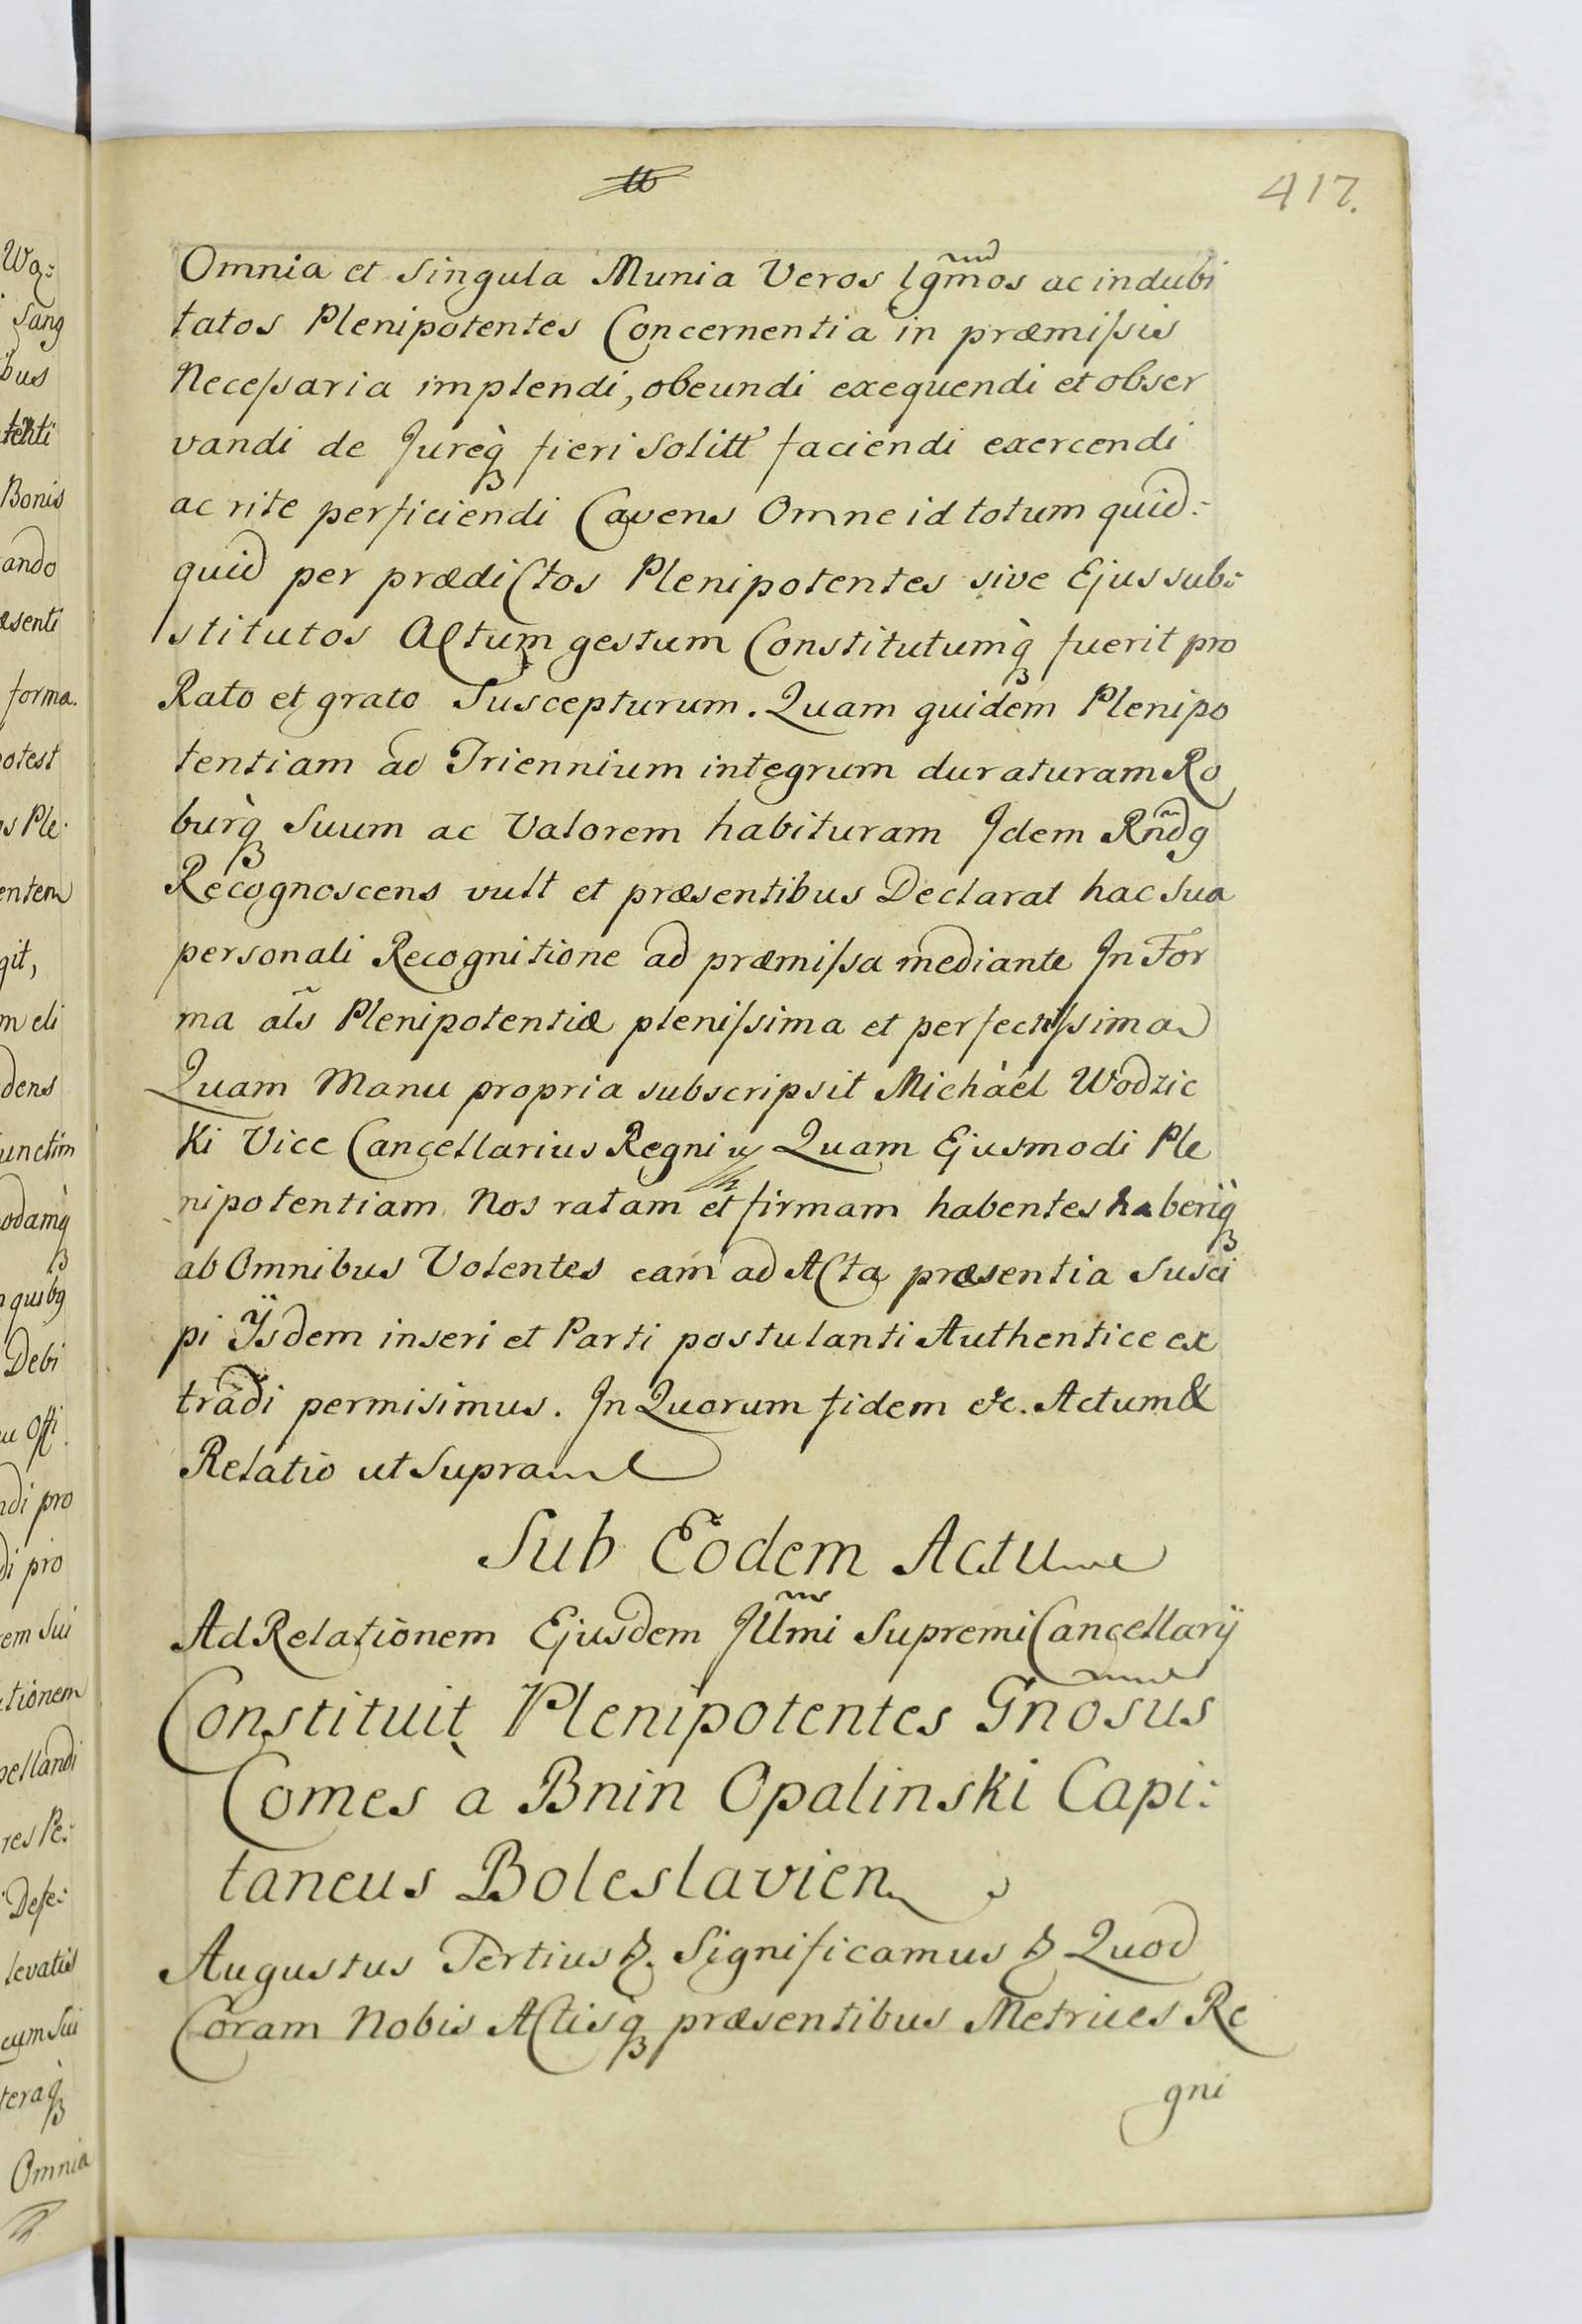 417.
Omnia et singula Munia Veros lgmos ac indubi
tatos Plenipotentes Concernentia in præmissis
Necessaria implendi, obeundi exequendi et obser
vandi de Jureq̀ fieri solitt faciendi exercendi
ac rite perficiendi Cavens Omne id totum quid:
quid per prædictos Plenipotentes sive Ejus subs:
stitutos Actum gestum Constitutumq̀ fuerit pro
Rato et grato Suscepturum. Quam quidem Plenipo
tentiam ad Triennium integrum duraturam Ro
burq̀ Suum ac Valorem habituram Idem Rndg
Recognoscens vult et præsentibus Declarat hac Sua
personali Recognitione ad præmissa mediante In For
ma als Plenipotentiæ plenissima et perfectissima
Quam Manu propria subscripsit Michàel Wodzic
Ki Vice Cancellarius Regni Quam Ejusmodi Ple
nipotentiam Nos ratam et firmam habentes haberiq̀
ab Omnibus Volentes eam ad Acta præsentia Susci
pi Ÿsdem inseri et Parti postulanti Authentice ex
tradi permisimus. In Quorum fidem etc. Actum &
Relatio ut Supra
Sub Eodem Actu
Ad Relationem Ejusdem Illmi Supremi Cancellarÿ
Constituit Plenipotentes Gnosus
Comes à Bnin Opalinski Capi:
taneus Boleslavien
Augustus Tertius &. Significamus & Quod
Coram Nobis Actisq̀ præsentibus Metrices Re
gni
Wo:
Sang
bus
tenti
Bonis
ando
æsenti
forma.
otest
os Ple:
entem
git,
m eli
dens
unctim
odamq̀
quibg
Debi
u Offi
ndi pro
di pro
em Sui
tionem
pellandi
res Pe:
Defe:
levatis
cum Sui
teraq̀
Omnia